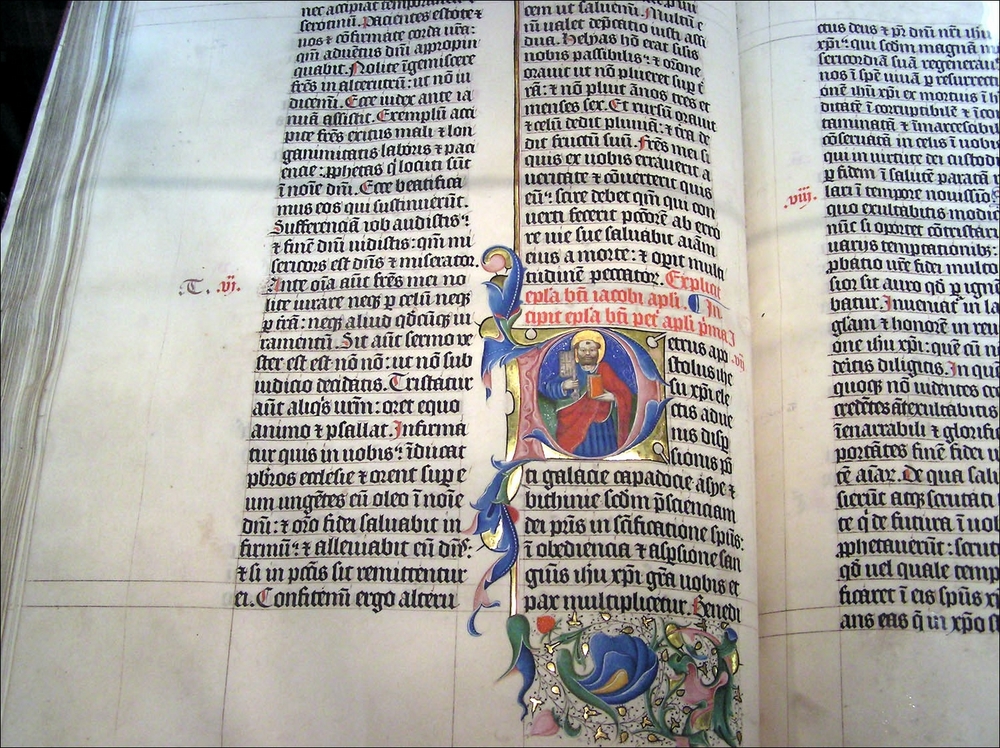 nec accipiat temporaneū ⁊
serotinū. Pacientes estote ⁊
uos ⁊ cōfirmate corda ura:
qm̄ aduētus dn̄i appropin
quabit. Nolite īgemiscere
frēs in alterutrū: ut nō iu
dicemī. Ecce iudex ante ia
nuā assistit. Exemplū acci
pite frēs exitus mali ⁊ lon
ganimitatis laboris ⁊ paci
encie: ꝓphetas qͥ locuti sūt
ī noīe dn̄i. Ecce beatifica
mus eos qui sustinuerūt.
Sufferenciā iob audistis:
⁊ finē dn̄i uidistis: qm̄ mi
sericors est dn̄s ⁊ miserator.
.T. .vj.
Ante oīa aūt frēs mei no
lite iurare neqꝫ ꝑ celū neqꝫ
ꝑ trā: neqꝫ aliud qd̄cūqꝫ iu
ramentū. Sit autē sermo ve
ster est est nō nō: ut nō sub
iudicio decidatis. Tristatur
aūt aliqͥs urm̄: oret equo
animo ⁊ psallat. Infirma
tur quis in uobis: īducat
pb̄ros ecclesie ⁊ orent suꝑ e
um ungētes eū oleo ī noīe
dn̄i: ⁊ oro fidei saluabit in
firmū: ⁊ alleuiabit eū dn̄s:
⁊ si in pctīs sit remittentur
ei. Confitemī ergo alteru
cem ut saluemī. Multū ē
nī ualet dep̄catio iusti assi
dua. Helyas hō erat silis
nobis passibilis: ⁊ orone
orauit ut nō plueret suꝑ t
rā: ⁊ nō pluit ānos tres et
menses sex. Et rursū orauit
⁊ celū dedit pluuiā: ⁊ tra de
dit fructū suū. Frēs mei si
quis ex uobis errauerit a
ueritate ⁊ cōuerterit quis
eū: scire debet qm̄ qui con
uerti fecerit pctōrē ab erro
re uie sue saluabit aīam
eius a morte: ⁊ opit multi
tudinē peccator. Explicit
epl̄a bt̄i iacobi apl̄i. In
cipit epl̄a bt̄i pet apl̄i pͥma
Petrus apo
stolus ihu
xp̄i ele
ctis adue
nis disp̄
sionis pō
ti galacie capadocie asye ⁊
bithinie scdm p̄scienciam
dei pr̄is in sc̄ificatione sp̄us:
ī obediencia ⁊ aspsione san
guis ih̄u xp̄i gr̄a uobis et
pax multiplicetur. Benedi
.viij.
ctus deus ⁊ pr̄ dn̄i nr̄i ih̄u
xp̄i: qui scdm magnā m
sericordiā suā regenerau
nos ī spē uiuā ꝑ resurrecti
onē ih̄u xp̄i ex mortuis ī h
ditatē ī corruptibilē ⁊ ī co
taminatā ⁊ īmarcescibil
cōseruatā in celis ī uobis
qui in uirtute dei custodi
ꝑ fidem ī salutē paratā r
lari ī tempore nouissio.
quo exultabitis modicū
nūc si oportet cōtristari
uariis temptationibꝫ:
ꝓbatio ure fidei multo
sior sit auro qd̄ ꝑ ignē
batur. Inueniat in la
glam ⁊ honorē in reu
one ih̄u xp̄i: quē cū n
deritis diligitis. In
quoqꝫ nō uidentes
credētes āt exultabitis
īenarrabili ⁊ glorifi
portātes finē fidei u
tē aīar. De qua salu
sierūt atqꝫ scrutati
te q̄ de futura ī uob
ꝓphetauerūt: scrut
qd̄ uel quale temp
ficaret ī eis sp̄us xp̄i